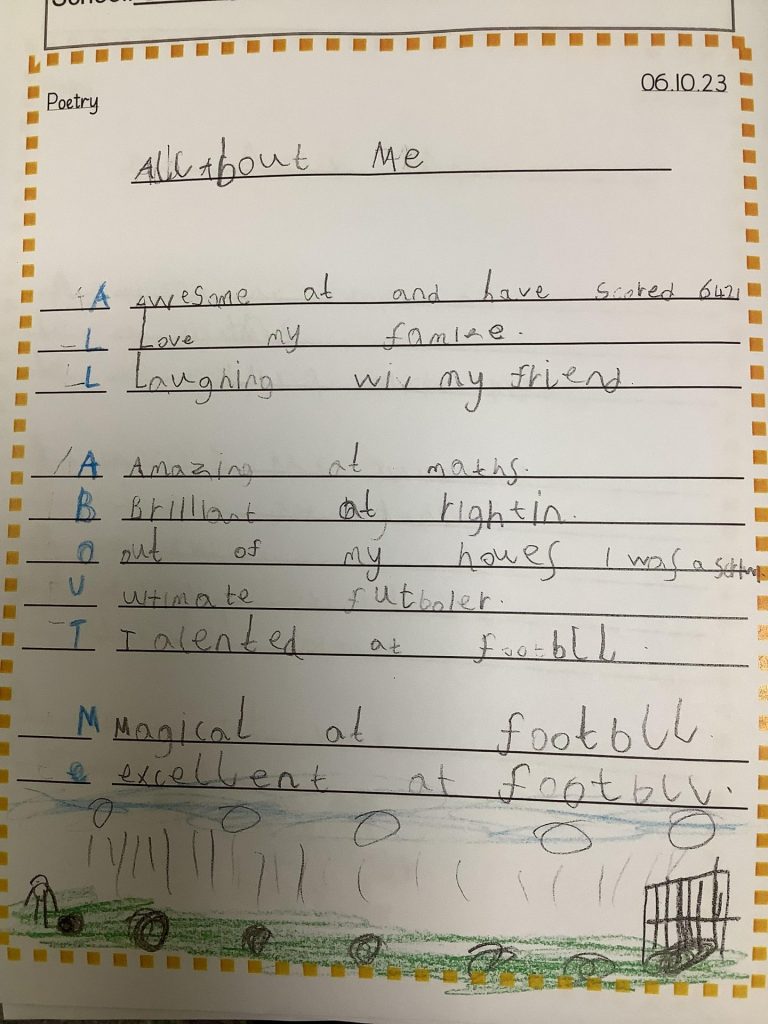 School:
06.10.23
Poetry
All About Me
A awesome at and have scored 6421
L Love my famlee.
L Laughing wiv my friend.
A Amazing at maths.
B Brilliant at rightin.
O out of my houes I was a
U ultimate futboler.
T Talented at footbll.
M Magical at footbll.
e excellent at footbll.